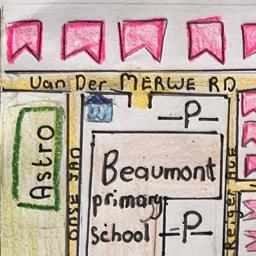 Van Der MERWE RD
-P-
Astro
ONSE JAN
Beaumont
primary
school
-P-
Reiger AVE